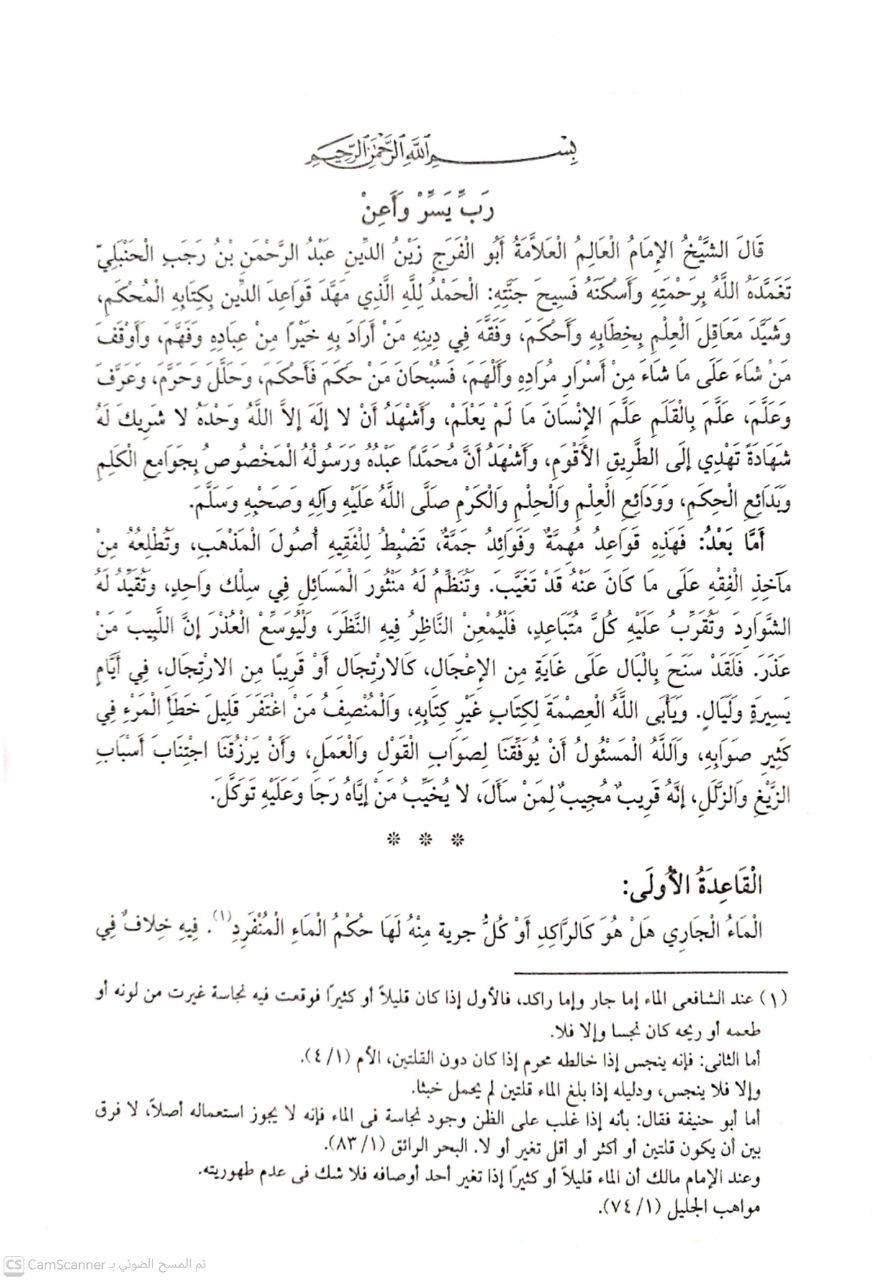 بِسْمِ اللَّهِ الرَّحْمَنِ الرَّحِيمِ
رَبِّ يَسِّرْ وَأَعِنْ
قَالَ الشَّيْخُ الإِمَامُ الْعَالِمُ الْعَلاَّمَةُ أَبُو الْفَرَجِ زَيْنُ الدِّينِ عَبْدُ الرَّحْمَنِ بْنُ رَجَبِ الْحَنْبَلِيّ
تَغَمَّدَهُ اللَّهُ بِرَحْمَتِهِ وَأَسْكَنَهُ فَسِيحَ جَنَّتِهِ: الْحَمْدُ لِلَّهِ الَّذِي مَهَّدَ قَوَاعِدَ الدِّينِ بِكِتَابِهِ الْمُحْكَمِ،
وَشَيَّدَ مَعَاقِلَ الْعِلْمِ بِخِطَابِهِ وَأَحْكَمَ، وَفَقَّهَ فِي دِينِهِ مَنْ أَرَادَ بِهِ خَيْرًا مِنْ عِبَادِهِ وَفَهَّمَ، وَأَوْقَفَ
مَنْ شَاءَ عَلَى مَا شَاءَ مِنْ أَسْرَارِ مُرَادِهِ وَأَلْهَمَ، فَسُبْحَانَ مَنْ حَكَمَ فَأَحْكَمَ، وَحَلَّلَ وَحَرَّمَ، وَعَرَّفَ
وَعَلَّمَ، عَلَّمَ بِالْقَلَمِ عَلَّمَ الإِنْسَانَ مَا لَمْ يَعْلَمْ، وَأَشْهَدُ أَنْ لا إلَهَ إلاَّ اللَّهُ وَحْدَهُ لا شَرِيكَ لَهُ
شَهَادَةً تَهْدِي إلَى الطَّرِيقِ الأَقْوَمِ، وَأَشْهَدُ أَنَّ مُحَمَّدًا عَبْدُهُ وَرَسُولُهُ الْمَخْصُوصُ بِجَوَامِعِ الْكَلِمِ
وَبَدَائِعِ الْحِكَمِ، وَوَدَائِعِ الْعِلْمِ وَالْحِلْمِ وَالْكَرَمِ صَلَّى اللَّهُ عَلَيْهِ وَآلِهِ وَصَحْبِهِ وَسَلَّمَ.
أَمَّا بَعْدُ: فَهَذِهِ قَوَاعِدُ مُهِمَّةٌ وَفَوَائِدُ جَمَّةٌ، تَضْبِطُ لِلْفَقِيهِ أُصُولَ الْمَذْهَبِ، وَتُطْلِعُهُ مِنْ
مَآخِذِ الْفِقْهِ عَلَى مَا كَانَ عَنْهُ قَدْ تَغَيَّبَ. وَتُنَظِّمُ لَهُ مَنْثُورَ الْمَسَائِلِ فِي سِلْكٍ وَاحِدٍ، وَتُقَيِّدُ لَهُ
الشَّوَارِدَ وَتُقَرِّبُ عَلَيْهِ كُلَّ مُتَبَاعِدٍ، فَلْيُمْعِنْ النَّاظِرُ فِيهِ النَّظَرَ، وَلْيُوَسِّعْ الْعُذْرَ إنَّ اللَّبِيبَ مَنْ
عَذَرَ. فَلَقَدْ سَنَحَ بِالْبَالِ عَلَى غَايَةٍ مِن الإِعْجَالِ، كَالارْتِجَالِ أَوْ قَرِيبًا مِن الارْتِجَالِ، فِي أَيَّامٍ
يَسِيرَةٍ وَلَيَالٍ. وَيَأبَى اللَّهُ الْعِصْمَةَ لِكِتَابٍ غَيْرِ كِتَابِهِ، وَالْمُنْصِفُ مَنْ اغْتَفَرَ قَلِيلَ خَطَأِ الْمَرْءِ فِي
كَثِيرِ صَوَابِهِ، وَاَللَّهُ الْمَسْئُولُ أَنْ يُوَفِّقَنَا لِصَوَابِ الْقَوْلِ وَالْعَمَلِ، وَأَنْ يَرْزُقَنَا اجْتِنَابَ أَسْبَابِ
الزَّيْغِ وَالزَّلَلِ، إنَّهُ قَرِيبٌ مُجِيبٌ لِمَنْ سَأَلَ، لا يُخَيِّبُ مَنْ إيَّاهُ رَجَا وَعَلَيْهِ تَوَكَّلَ.
* * *
الْقَاعِدَةُ الأُولَى:
الْمَاءُ الْجَارِي هَلْ هُوَ كَالرَّاكِدِ أَوْ كُلُّ جرية مِنْهُ لَهَا حُكْمُ الْمَاءِ الْمُنْفَرِدِ(١). فِيهِ خِلافٌ فِي
(١) عند الشافعى الماء إما جار وإما راكد، فالأول إذا كان قليلاً أو كثيرًا فوقعت فيه نجاسة غيرت من لونه أو
طعمه أو ريحه كان نجسا وإلا فلا.
أما الثانى: فإنه ينجس إذا خالطه محرم إذا كان دون القلتين، الأم (٤/١).
وإلا فلا ينجس، ودليله إذا بلغ الماء قلتين لم يحمل خبثا.
أما أبو حنيفة فقال: بأنه إذا غلب على الظن وجود نجاسة فى الماء فإنه لا يجوز استعماله أصلاً، لا فرق
بين أن يكون قلتين أو أكثر أو أقل تغير أو لا. البحر الرائق (٨٣/١).
وعند الإمام مالك أن الماء قليلاً أو كثيرًا إذا تغير أحد أوصافه فلا شك فى عدم طهوريته.
مواهب الجليل (٧٤/١).
CS CamScanner تم المسح الضوئي بـ